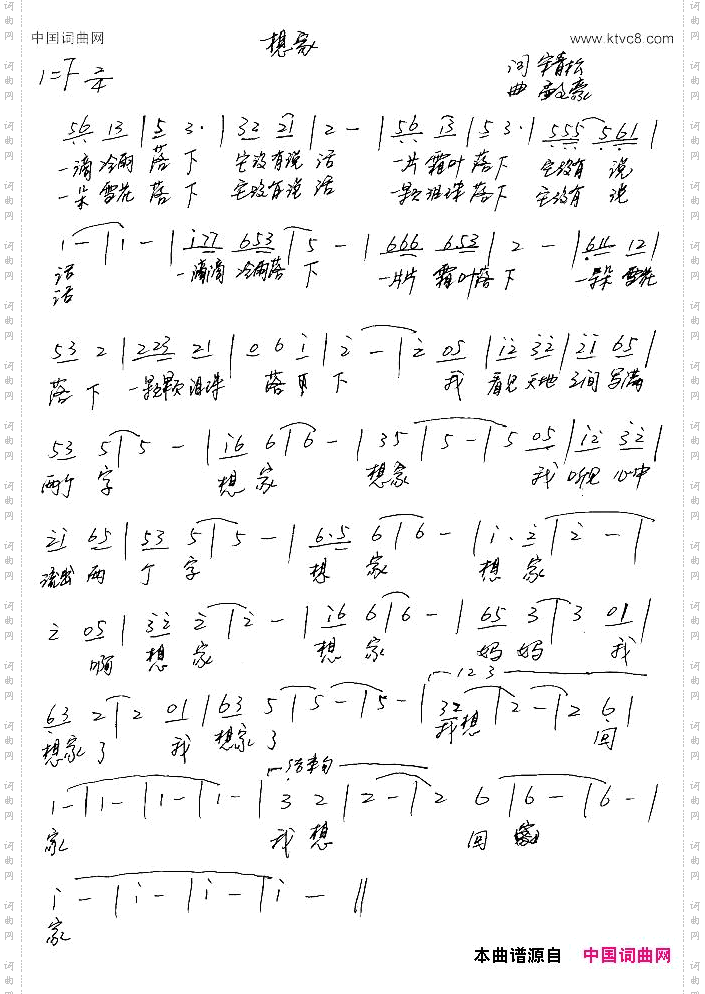 中国词曲网 想家 www.ktvc8.com
1=F 2/4 词 宋青松
曲
56 13 | 5 3· | 32 21 | 2 - | 56 13 | 5 3· | 555 561 |
一滴冷雨 落 下 它没有说 话 一片霜叶 落 下 它没有 说
一朵雪花 落 下 它没有说 话 一颗泪珠 落 下 它没有 说
1 - | 1 - | i77 653 | 5 - | 666 653 | 2 - | 611 12 |
话 一滴滴 冷雨落 下 一片片 霜叶落 下 一朵朵 雪花
话
53 2 | 223 21 | 0 6 i | i̇2 - | 2̇ 05 | i2̇ 3̇2̇ | 2̇i 65 |
落 下 一颗颗 泪珠 落 下 我 看见天地 之间写满
53 5 | 5 - | i6 6 | 6 - | 35 | 5 - | 5 05 | i2̇ 3̇2̇ |
两个 字 想 家 想家 我 听见 心中
2̇i 65 | 53 5 | 5 - | 6·5 6 | 6 - | i·2̇ | 2̇ - |
流出 两 个 字 想 家 想 家
2̇ 05 | 3̇2̇ 2̇ | 2̇ - | i6 6 | 6 - | 65 3 | 3 01 |
啊 想 家 想 家 妈 妈 我
1 2 3
63 2 | 2 01 | 63 5 | 5 - | 5 - | 32 | 2 - | 2 6 |
想家 了 我 想家 了 我想 回
结束句
1 - | 1 - | 1 - | 1 - | 3 2 | 2 - | 2 6 | 6 - | 6 - |
家 我 想 回
i - | i - | i - | i - ‖
家
本曲谱源自 中国词曲网